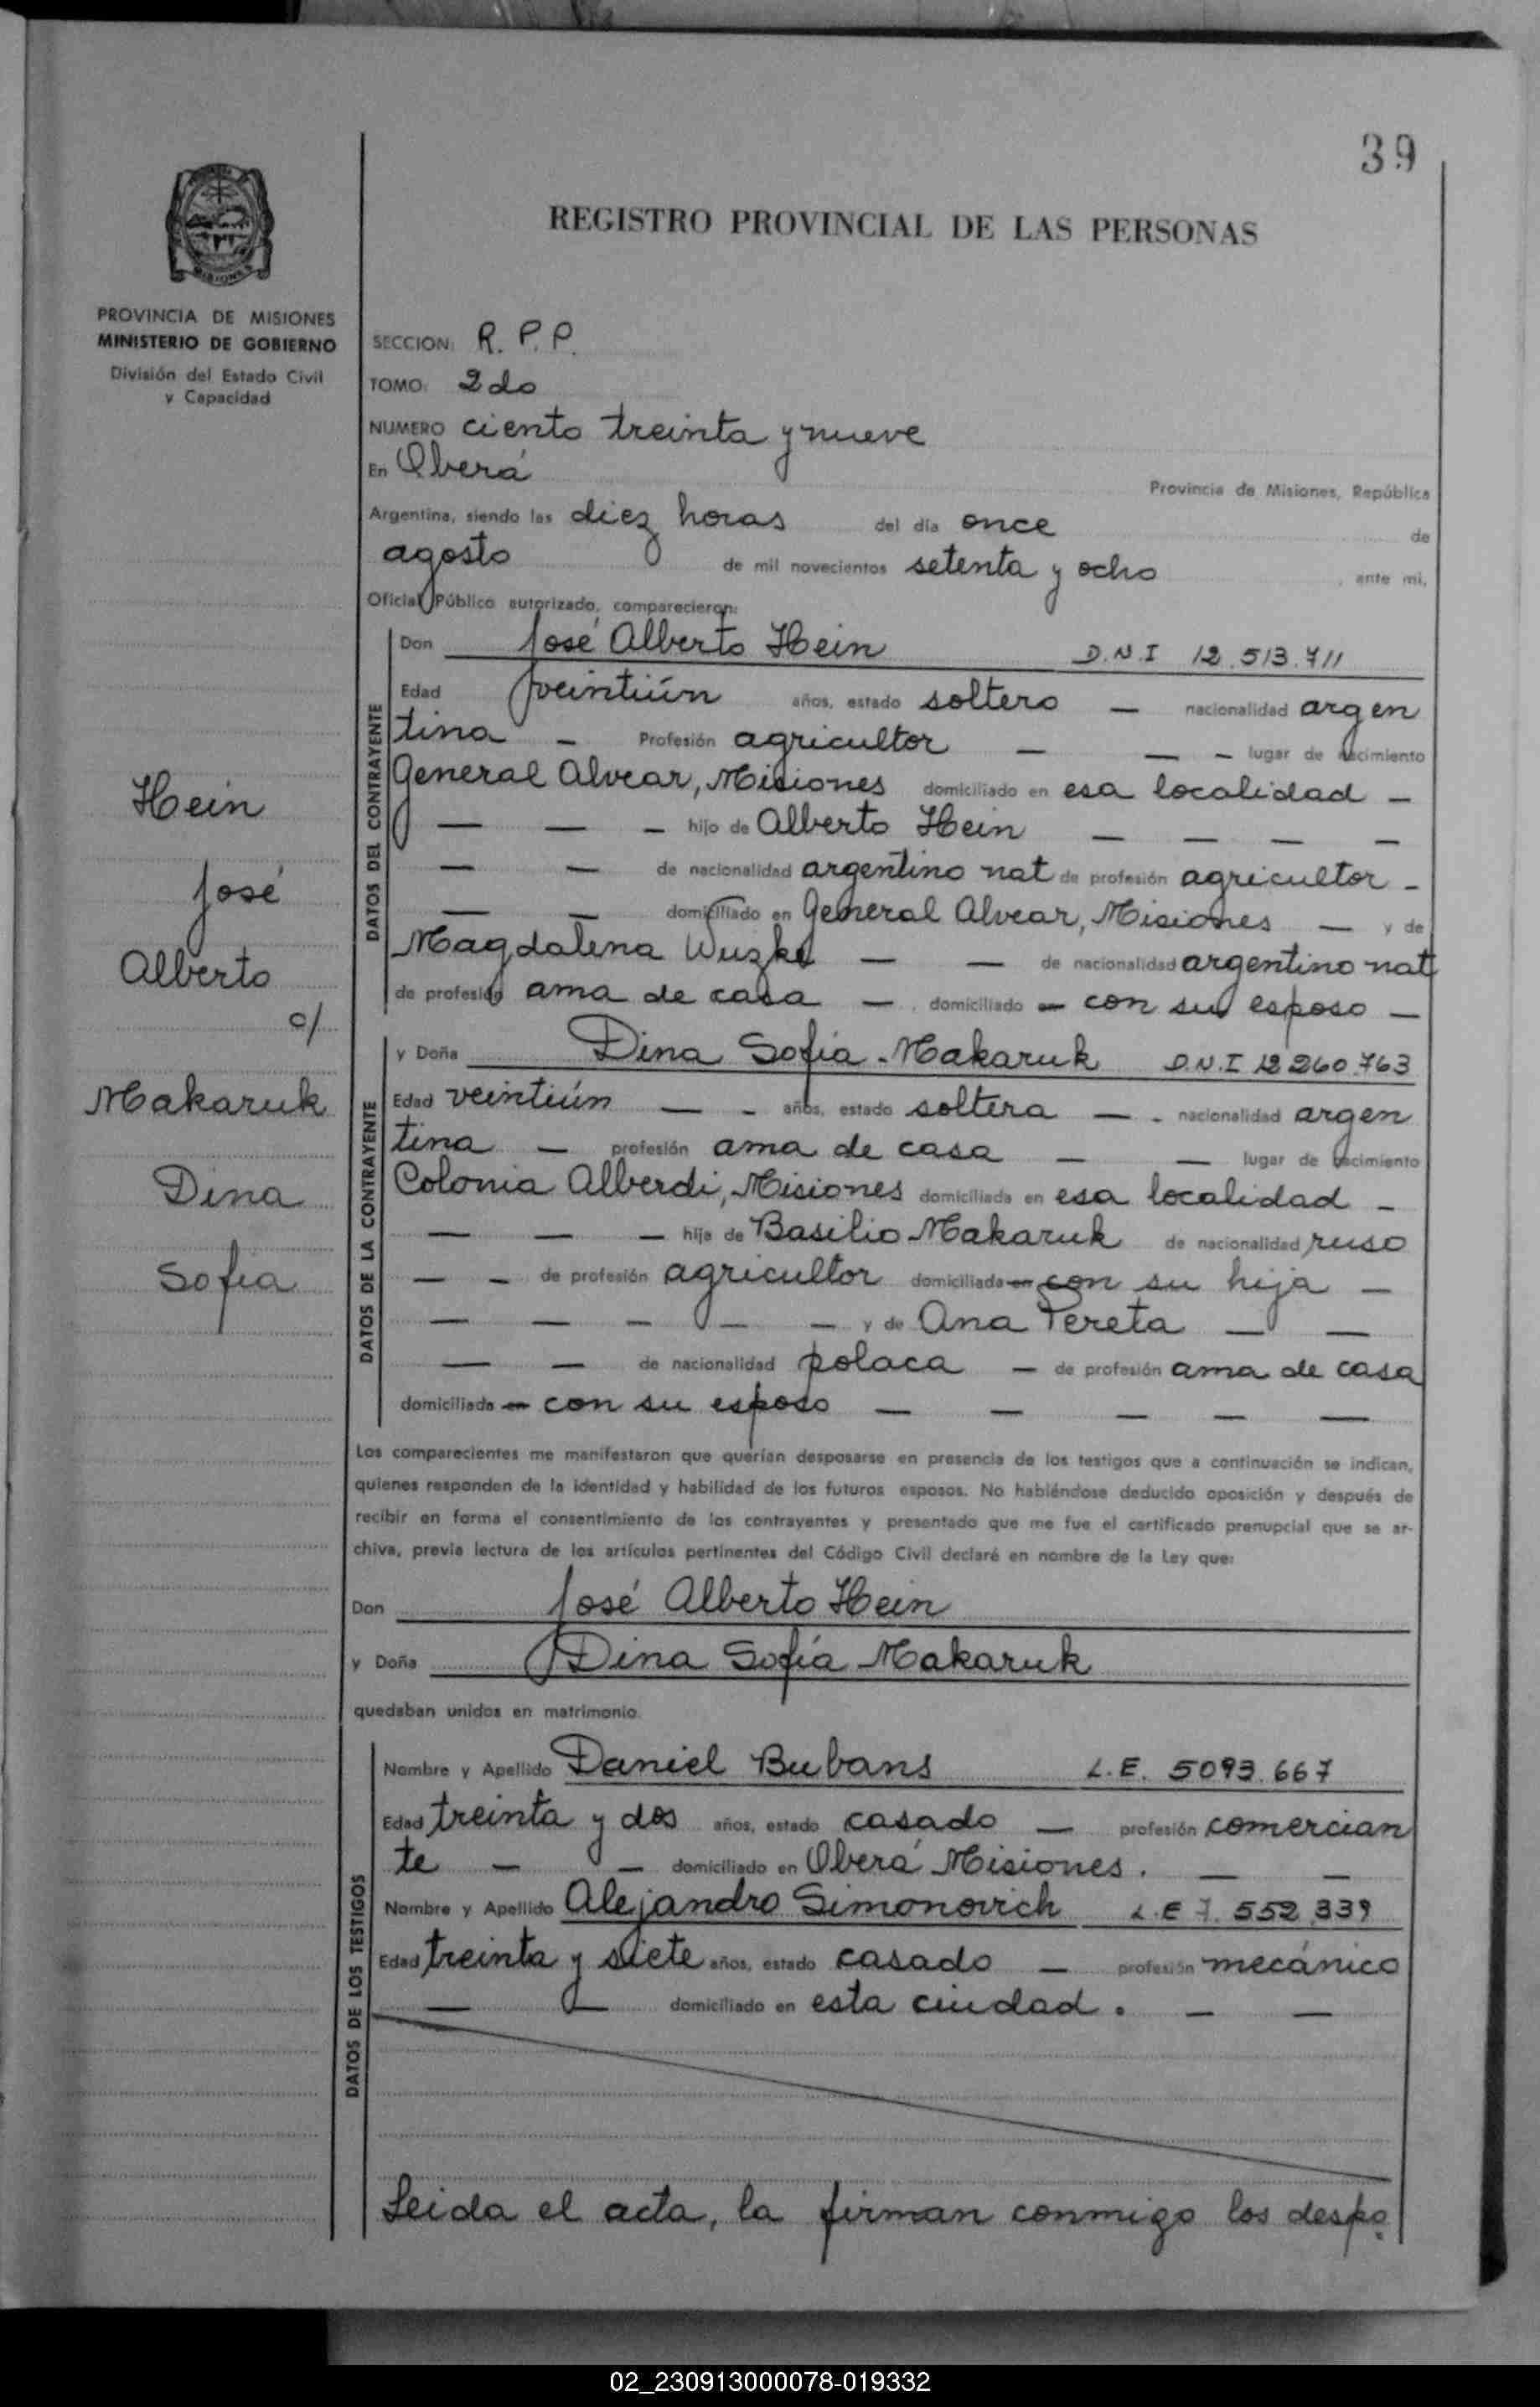 39
REGISTRO PROVINCIAL DE LAS PERSONAS
MISIONES
PROVINCIA DE MISIONES
MINISTERIO DE GOBIERNO
División del Estado Civil
y Capacidad
SECCION: R. P. P.
TOMO: 2do
NUMERO ciento treinta y nueve
En Oberá
Provincia de Misiones, República
Argentina, siendo las diez horas del día once de
agosto de mil novecientos setenta y ocho, ante mi,
Oficial Público autorizado, comparecieron:
Hein
José
Alberto
c/
Makaruk
Dina
Sofía
DATOS DEL CONTRAYENTE
Don José Alberto Hein D.N.I 12.513.711
Edad veintiún años, estado soltero — nacionalidad argen
tina — Profesión agricultor — — — lugar de nacimiento
General Alvear, Misiones domiciliado en esa localidad —
— — — hijo de Alberto Hein — — — —
— — de nacionalidad argentino nat de profesión agricultor —
— — domiciliado en General Alvear, Misiones — y de
Magdalena Wuzke — — de nacionalidad argentino nat
de profesión ama de casa — , domiciliado — con su esposo —
DATOS DE LA CONTRAYENTE
y Doña Dina Sofía Makaruk D.N.I 12 260.763
Edad veintiún — — años, estado soltera — - nacionalidad argen
tina — profesión ama de casa — — lugar de nacimiento
Colonia Alberdi, Misiones domiciliada en esa localidad —
— — — hija de Basilio Makaruk de nacionalidad ruso
— — de profesión agricultor domiciliada en con su hija —
— — — — — y de Ana Pereta — —
— — de nacionalidad polaca — de profesión ama de casa
domiciliada en con su esposo — — — — —
Los comparecientes me manifestaron que querían desposarse en presencia de los testigos que a continuación se indican,
quienes responden de la identidad y habilidad de los futuros esposos. No habiéndose deducido oposición y después de
recibir en forma el consentimiento de los contrayentes y presentado que me fue el certificado prenupcial que se ar-
chiva, previa lectura de los artículos pertinentes del Código Civil declaré en nombre de la Ley que:
Don José Alberto Hein
y Doña Dina Sofía Makaruk
quedaban unidos en matrimonio.
DATOS DE LOS TESTIGOS
Nombre y Apellido Daniel Bubans L.E. 5093.667
Edad treinta y dos años, estado casado — profesión comercian
te — — domiciliado en Oberá Misiones. — —
Nombre y Apellido Alejandro Simonovich L.E 7.552.339
Edad treinta y siete años, estado casado — profesión mecánico
— — domiciliado en esta ciudad. — —
Leida el acta, la firman conmigo los despo
02_230913000078-019332